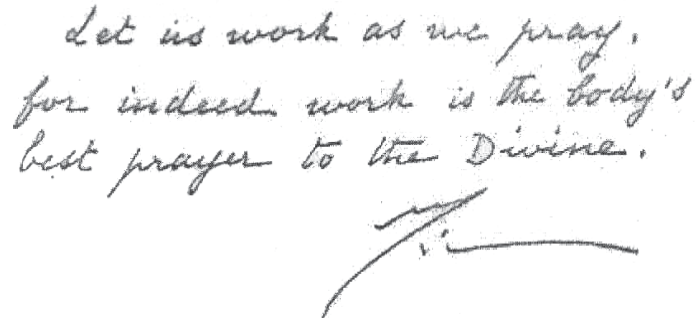 Let us work as we pray,
for indeed work is the body's
best prayer to the Divine.